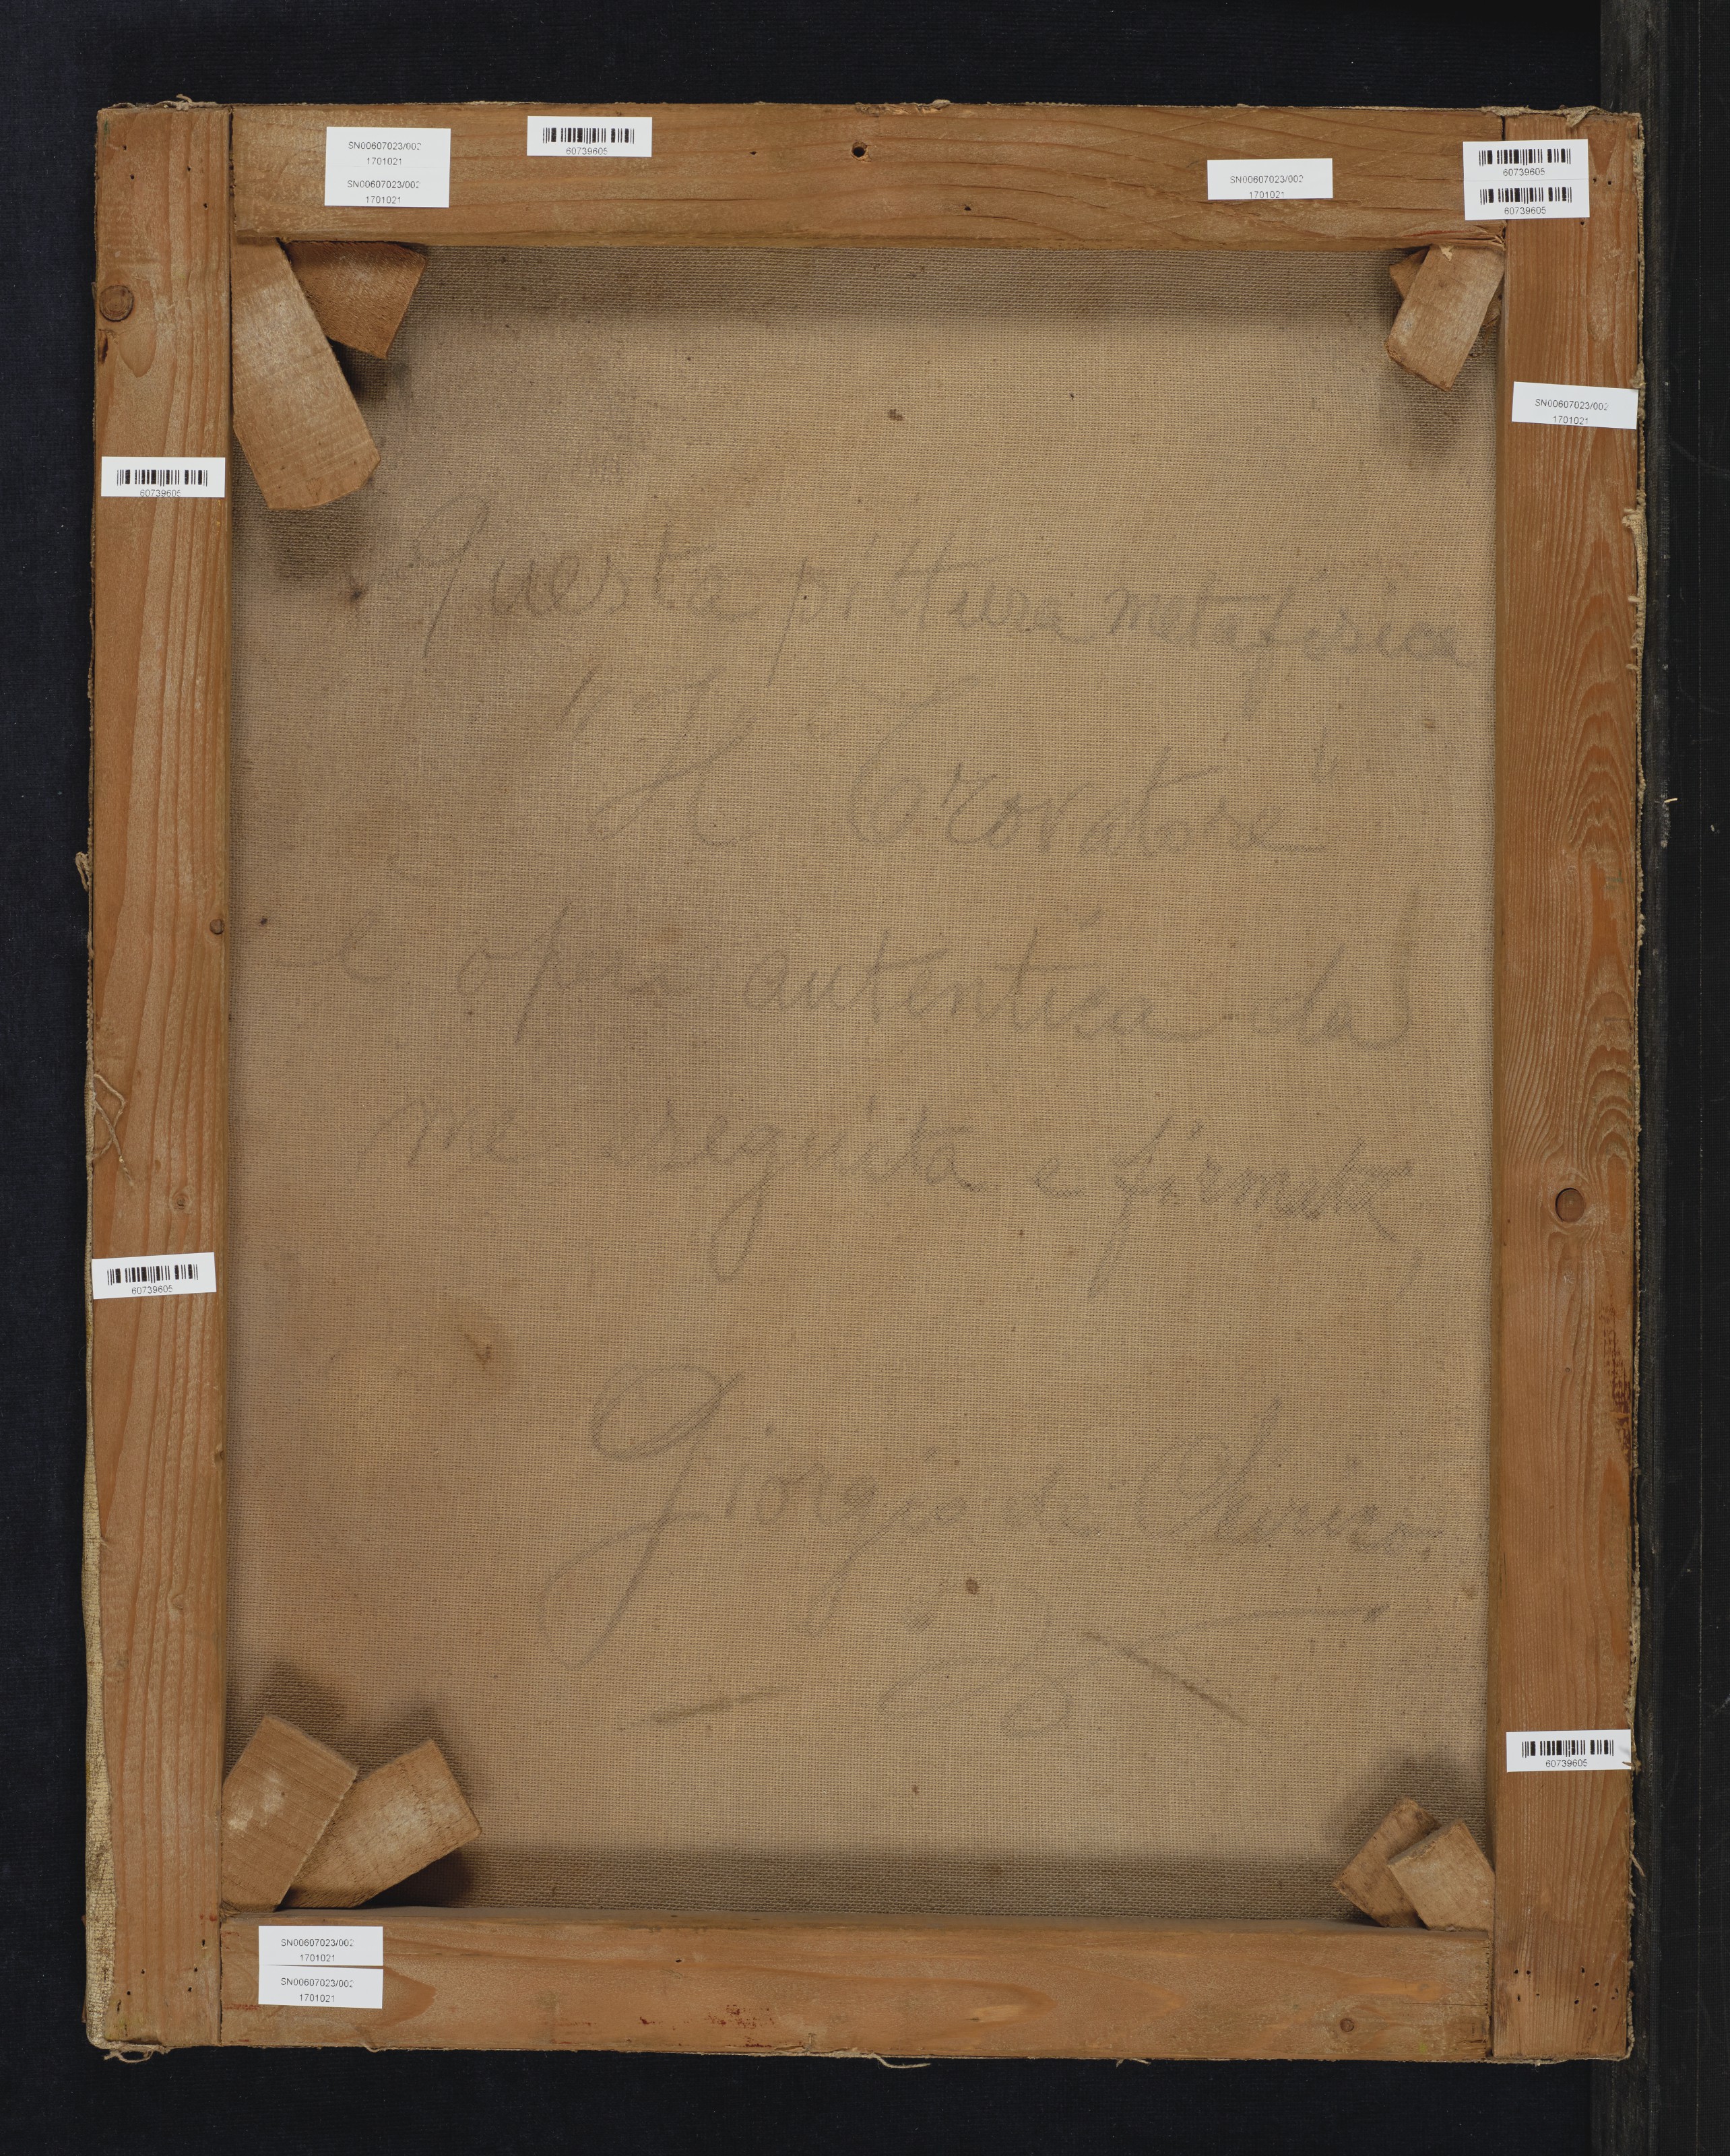 SN00607023/002
1701021
SN00607023/002
1701021
60739605
SN00607023/002
1701021
60739605
60739605
SN00607023/002
1701021
60739605
Questa pittura metafisica
"Il Trovatore"
è opera autentica da
me eseguita e firmata,
60739605
Giorgio de Chirico.
60739605
SN00607023/002
1701021
SN00607023/002
1701021